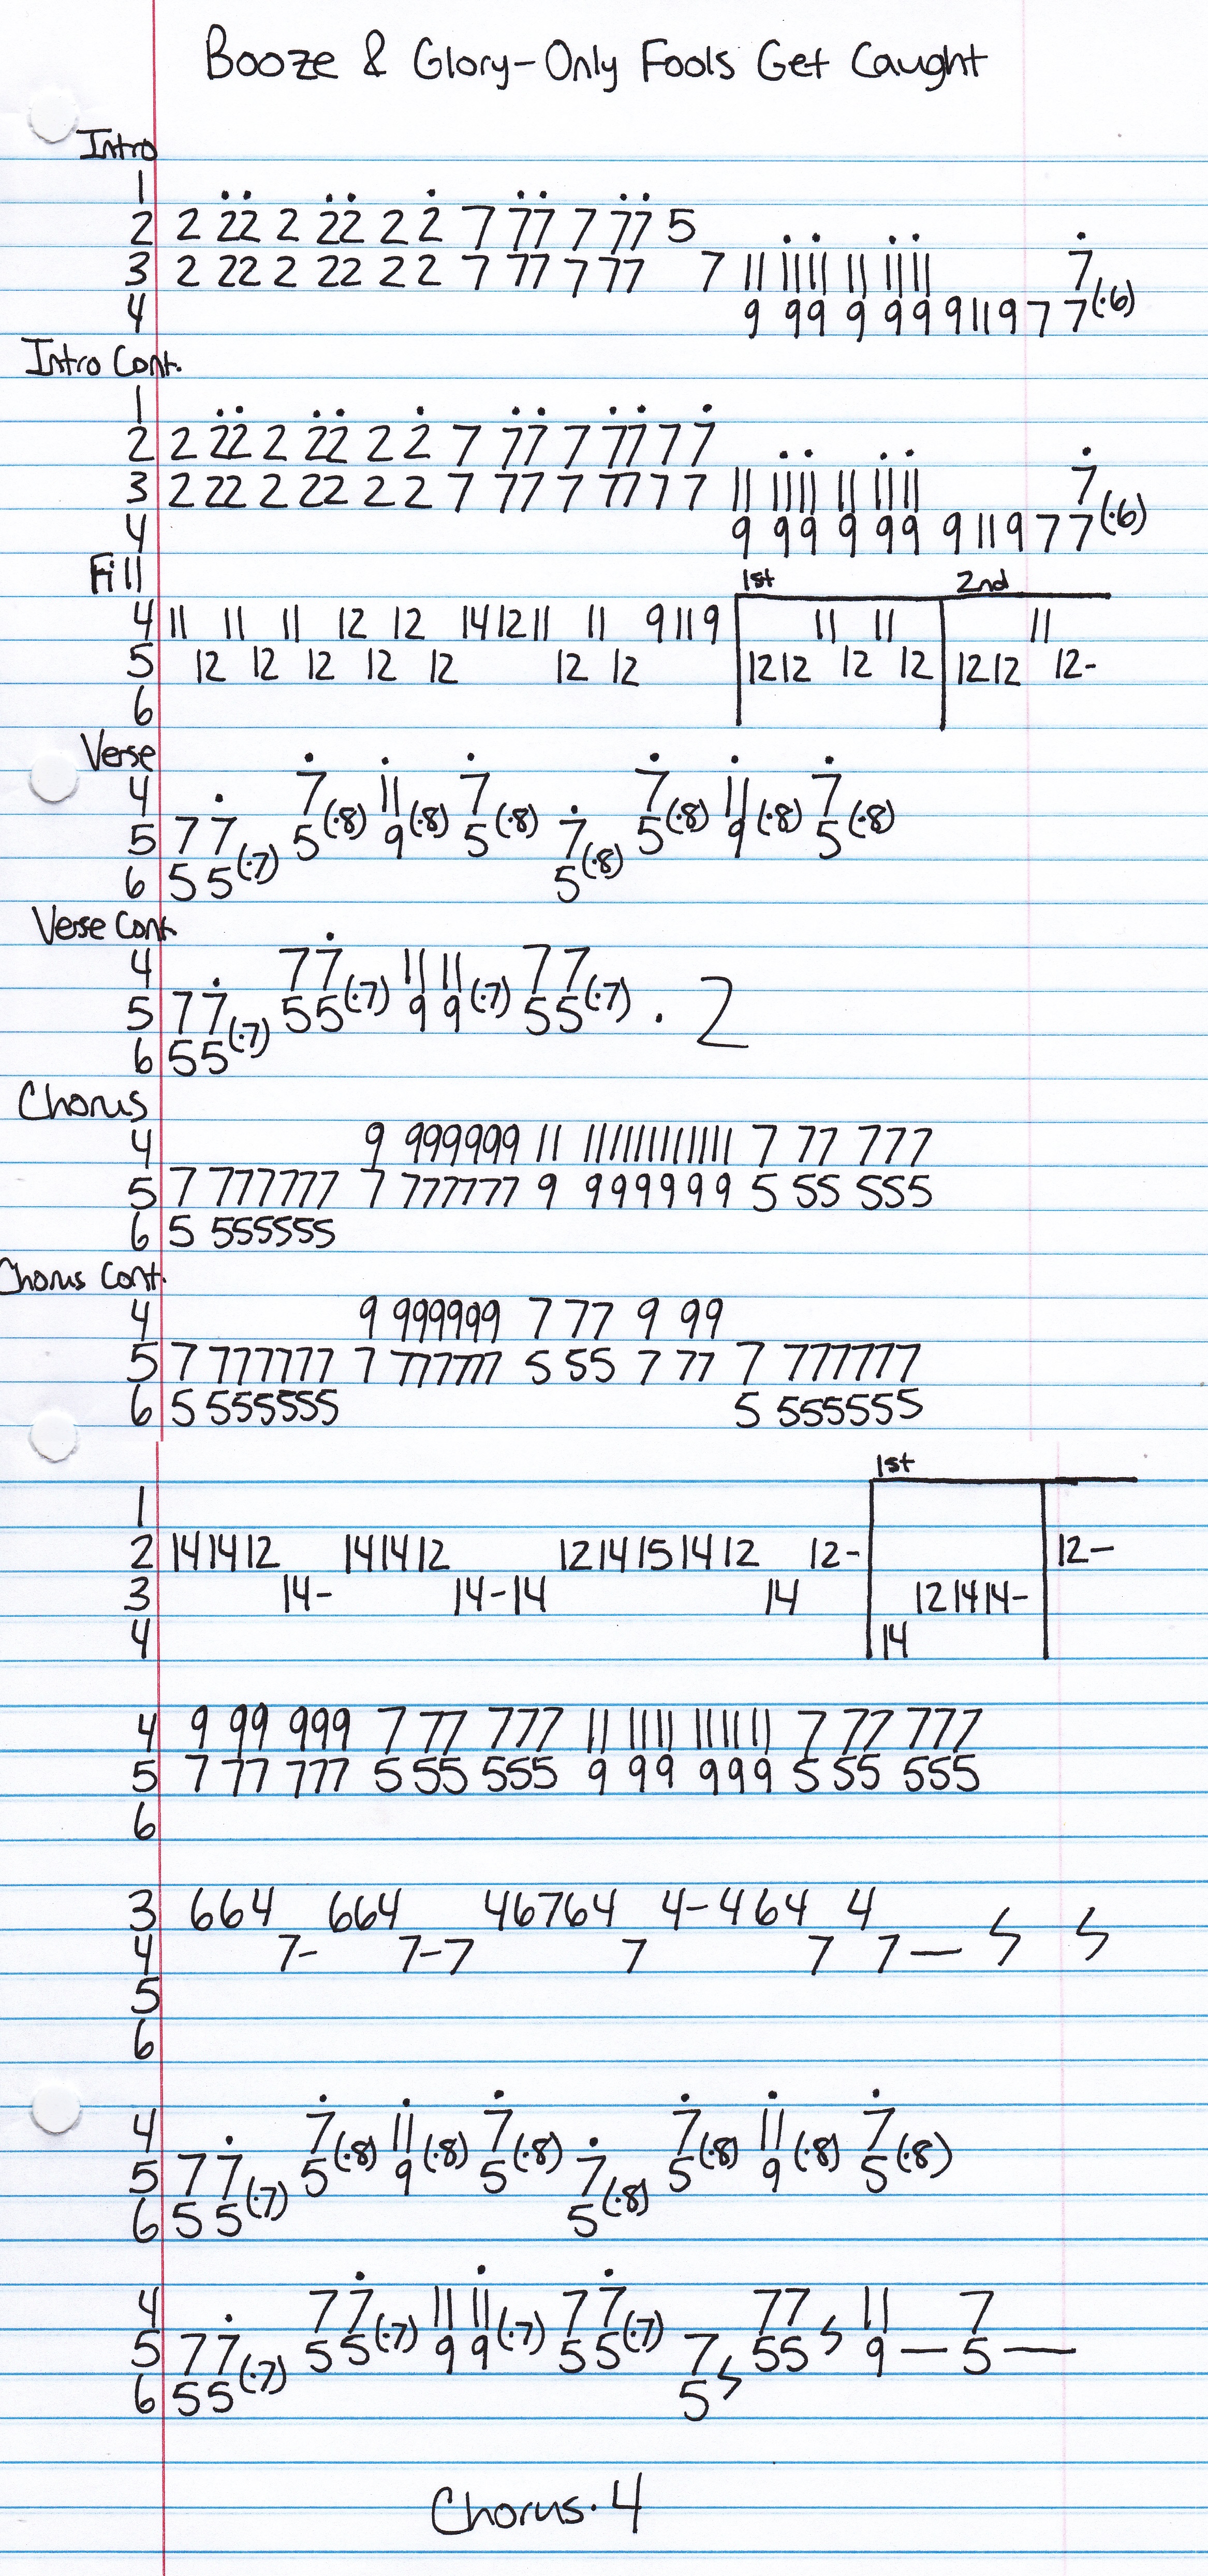 Booze & Glory-Only Fools Get Caught
Intro
1
2 2 22 2 22 2 2 7 77 7 77 5
3 2 22 2 22 2 2 7 77 7 77 7 11 1111 11 1111 7
4 9 99 9 99 9 11 9 7 7(·6)
Intro Cont.
1
2 2 22 2 22 2 2 7 77 7 77 7 7
3 2 22 2 22 2 2 7 77 7 77 7 7 11 1111 11 1111 7
4 9 99 9 99 9 11 9 7 7(·6)
Fill 1st 2nd
4 11 11 11 12 12 14 12 11 11 9 11 9 11 11 11
5 12 12 12 12 12 12 12 12 12 12 12 12 12 12-
6
Verse
4 7 11 7 7 11 7
5 7 7 5(·8) 9(·8) 5(·8) 7 5(·8) 9(·8) 5(·8)
6 5 5(·7) 5(·8)
Verse Cont.
4 7 7 11 11 7 7
5 7 7 5 5(·7) 9 9(·7) 5 5(·7) · 2
6 5 5(·7)
Chorus
4 9 999999 11 111111111111 7 77 777
5 7 777777 7 777777 9 999999 5 55 555
6 5 555555
Chorus Cont.
4 9 999999 7 77 9 99
5 7 777777 7 777777 5 55 7 77 7 777777
6 5 555555 5 555555
1st
1
2 14 14 12 14 14 12 12 14 15 14 12 12- 12-
3 14- 14-14 14 12 14 14-
4 14
4 9 99 999 7 77 777 11 1111 111111 7 77 777
5 7 77 777 5 55 555 9 99 999 5 55 555
6
3 664 664 46764 4-464 4
4 7- 7-7 7 7 7—
5
6
4 7 11 7 7 11 7
5 7 7 5(·8) 9(·8) 5(·8) 7 5(·8) 9(·8) 5(·8)
6 5 5(·7) 5(·8)
4 7 7 11 11 7 7 77 11 7
5 7 7 5 5(·7) 9 9(·7) 5 5(·7) 7 55 9— 5—
6 5 5(·7) 5
Chorus·4